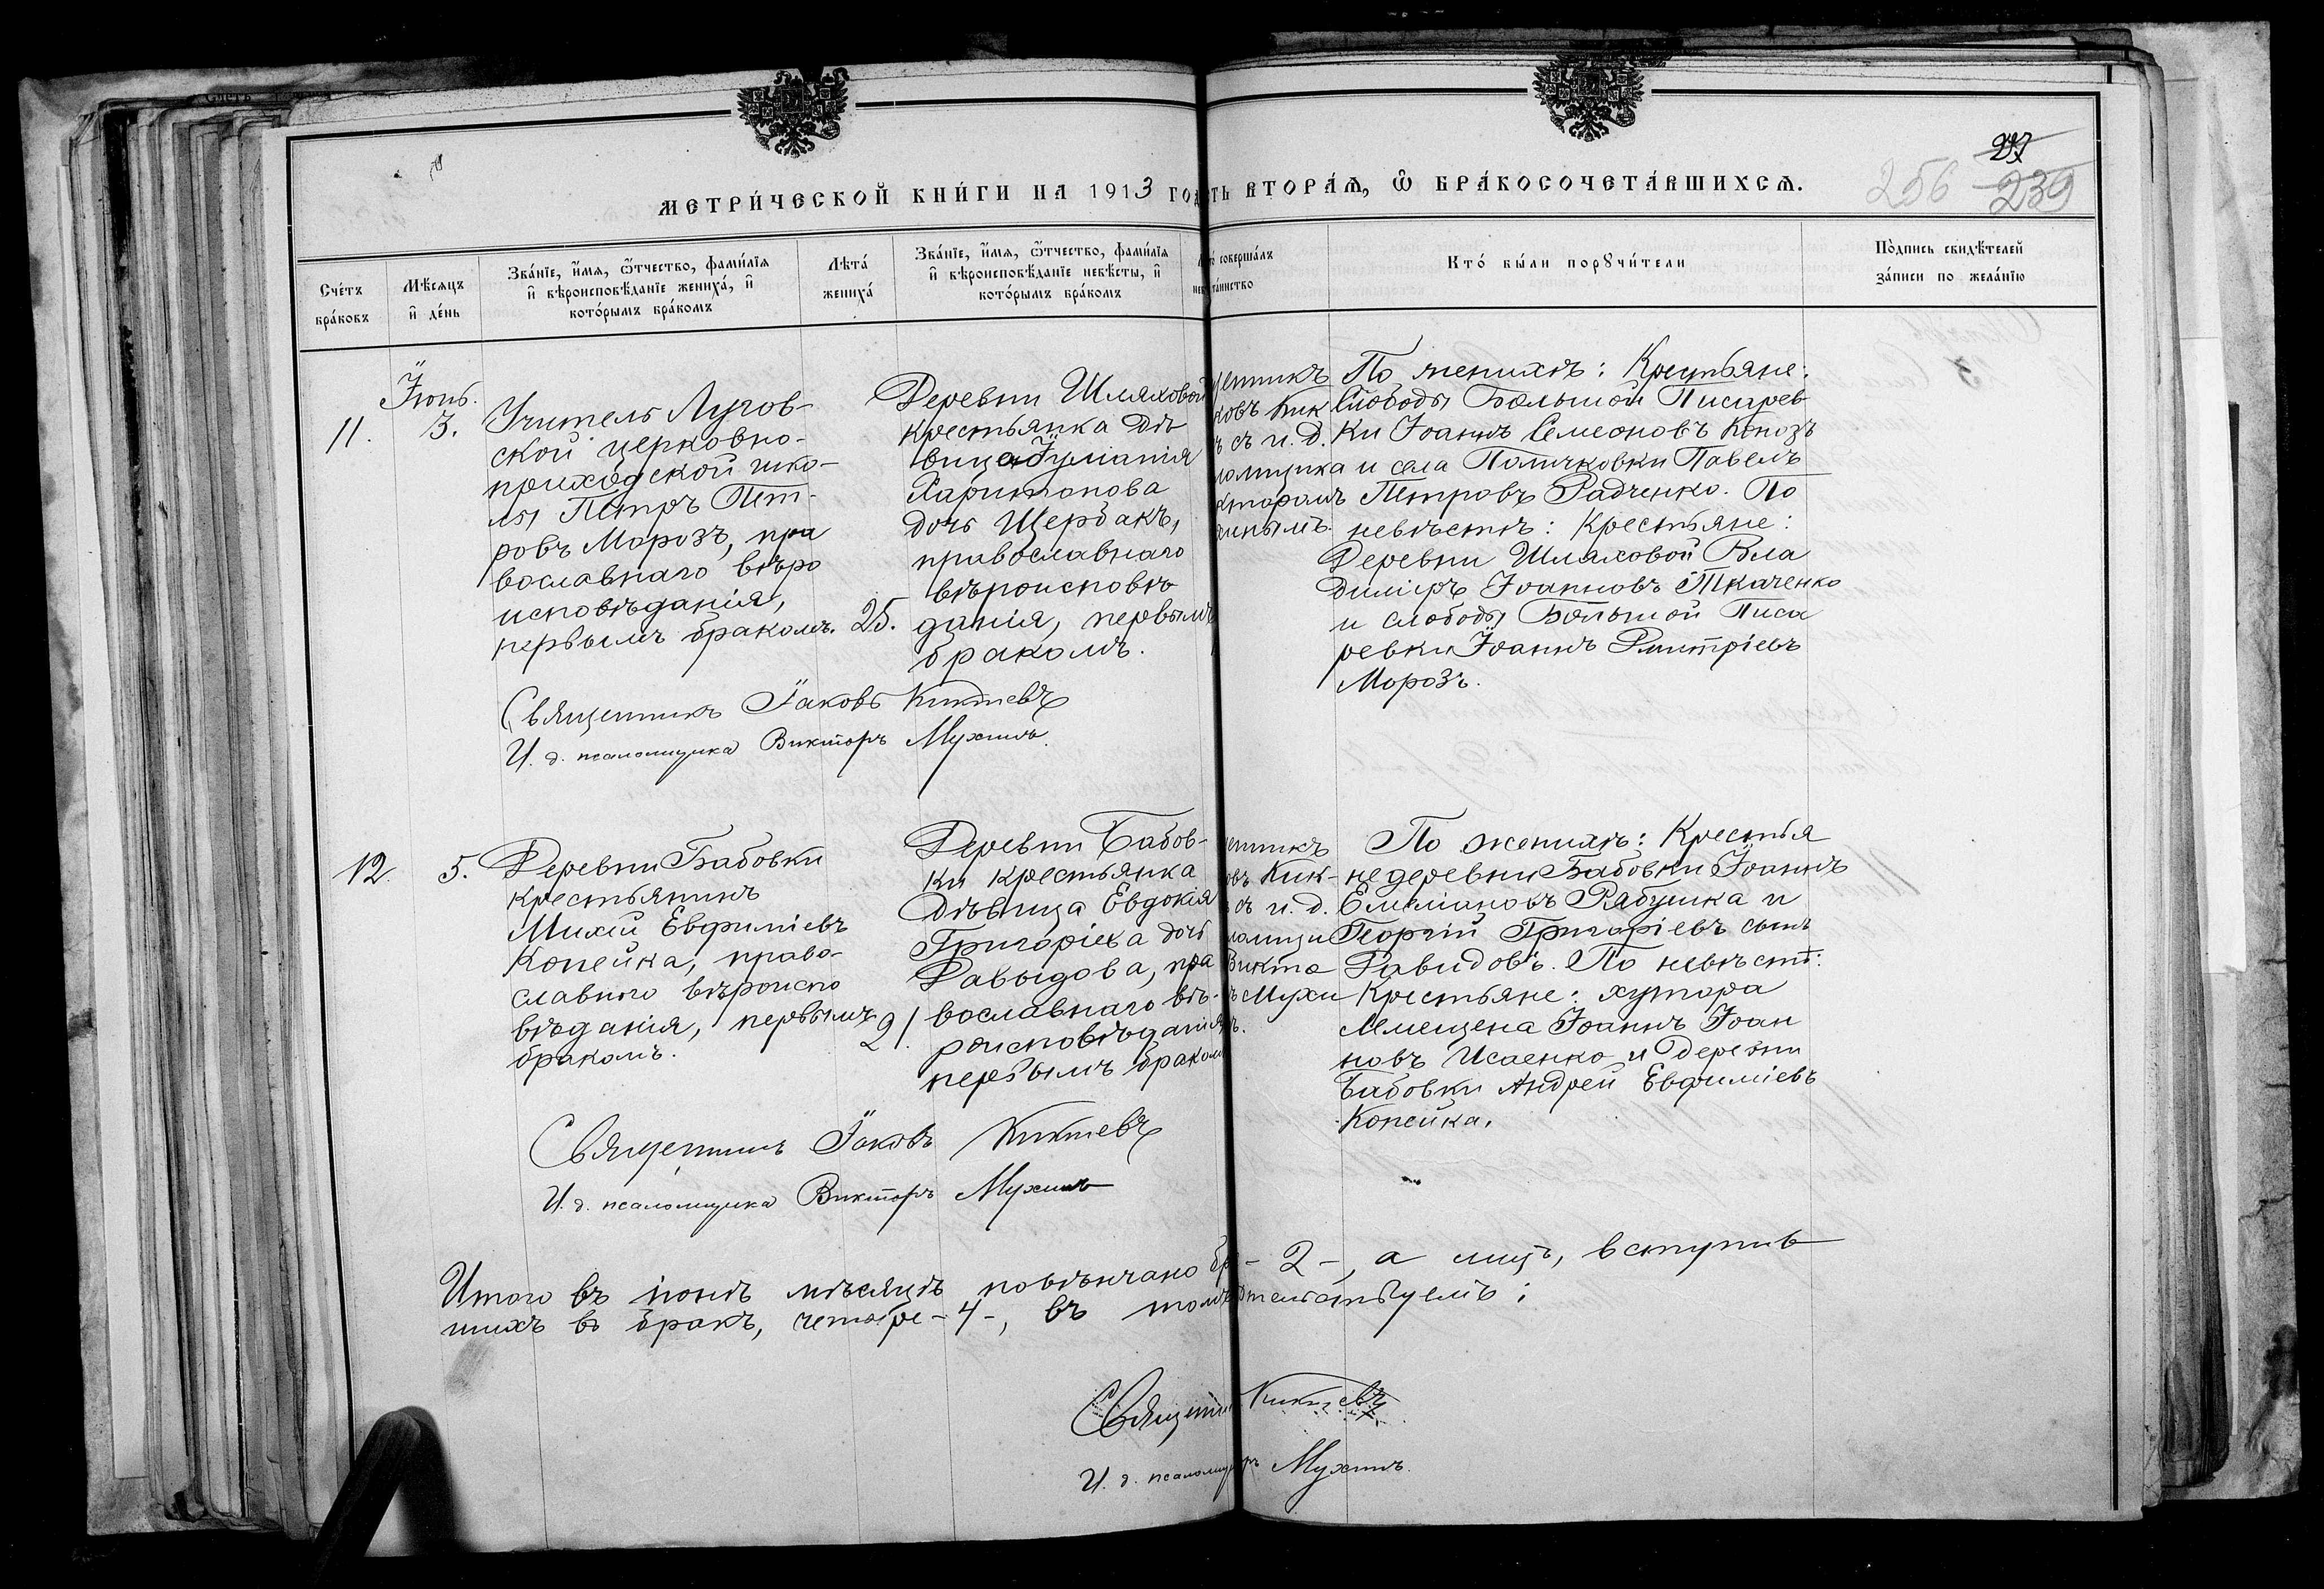 27
256 239
МЕТРИ́ЧЕСКОЙ КНИ́ГИ НА 1913 ГОД
ТЬ ВТОРА́Ѧ, Ѽ БРА́КОСОЧЕТА́ВШИХСѦ.
Сче́тъ бра́ковъ
Мѣ́сяцъ и҆ де́нь
Зва́нїе, и҆́мѧ, ѻ҆́тчество, фами́лїѧ
и҆ вѣроисповѣ́данїе жениха́, и҆
кото́рымъ бра́комъ
Лѣта́ жениха́
Зва́нїе, и҆́мѧ, ѻ҆́тчество, фами́лїѧ
и҆ вѣроисповѣ́данїе невѣ́сты, и҆
кото́рымъ бра́комъ
соверша́лъ
та́инство
Кто́ бы́ли порꙋчи́тели
По́дпись свидѣ́телей
за́писи по жела́нїю
11.
Іюнь.
3.
Учитель Лугов-
ской церковно-
приходской шко-
лы Петръ Пет-
ровъ Морозъ, пра
вославнаго вѣро
исповѣданія,
первымъ бракомъ.
25.
Деревни Шляховой
крестьянка дѣ
вица Іуліанія
Харитонова
дочь Щербакъ,
православнаго
вѣроисповѣ
данія, первымъ
бракомъ.
енникъ
ковъ Кик
съ и. д.
ломщика
кторомъ
инымъ.
По женихѣ: Крестьяне:
Слободы Большой Писарев
ки Іоаннъ Семеоновъ Князь
и села Поличковки Павелъ
Петровъ Радченко. По
невѣстѣ: Крестьяне:
Деревни Шляховой Вла
диміръ Іоанновъ Ткаченко
и слободы Большой Писа
ревки Іоаннъ Димитріевъ
Морозъ.
Священникъ Іаковъ Киктевъ
И. д. псаломщика Викторъ Мухинъ.
12.
5.
Деревни Бабовки
крестьянинъ
Михей Евфиміевъ
Копейка, право-
славного вѣроиспо
вѣданія, первымъ
бракомъ.
21.
Деревни Бабов-
ки крестьянка
дѣвица Евдокія
Григоріева дочь
Давыдова, пра
вославнаго вѣ-
роисповѣданія
первымъ браком
енникъ
овъ Кик-
съ и. д.
ломщи
Викто
ъ Мухи
ъ.
По женихѣ: Крестья
не деревни Бабовки Іоаннъ
Емиліановъ Рябушка и
Георгій Григоріевъ сынъ
Давидовъ. По невѣстѣ:
Крестьяне: хутора
Лемещена Іоаннъ Іоан
новъ Исаенко и деревни
Бабовки Андрей Евфиміевъ
Копейка.
Священникъ Іаковъ Киктевъ
И. д. псаломщика Викторъ Мухинъ
Итого въ іюнѣ мѣсяцѣ повѣнчано бр - 2 -, а лицъ, вступив
шихъ въ бракъ, четыре - 4 -, въ томъ
тельствуемъ:
Священни Киктевъ
И. д. псаломщ ръ Мухинъ.